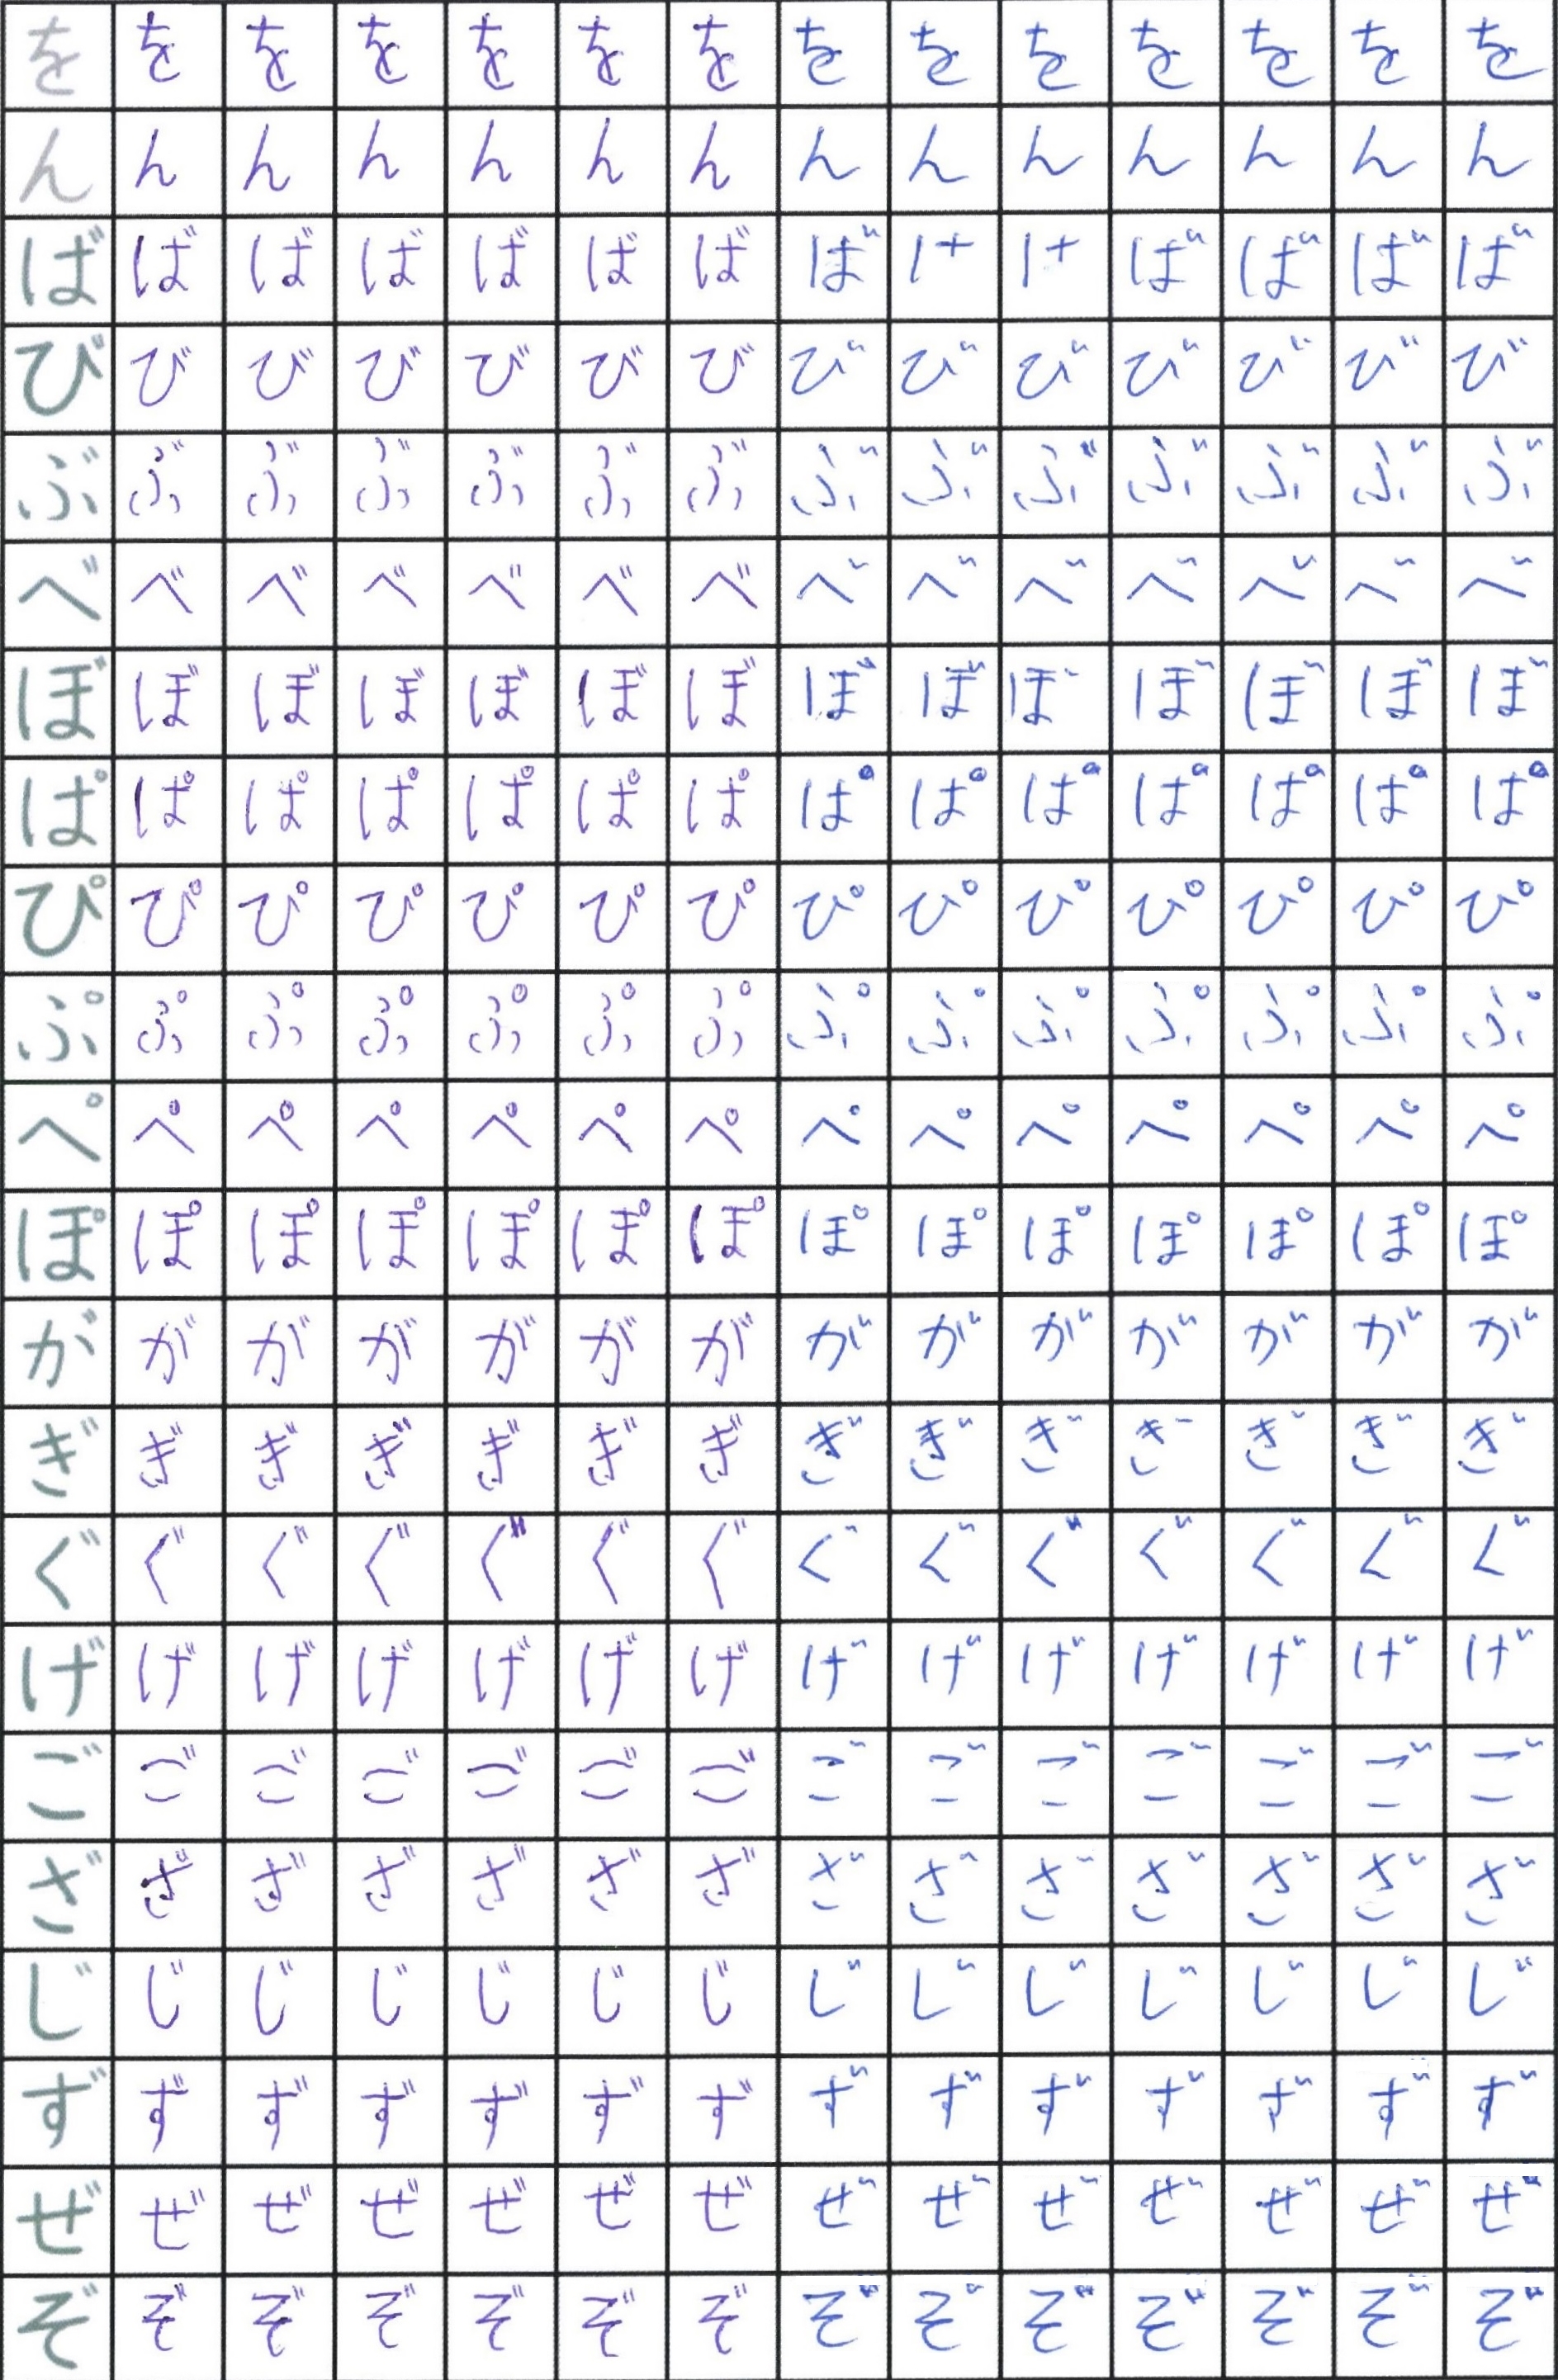 を を を を を を を を を を を を を を
ん ん ん ん ん ん ん ん ん ん ん ん ん ん
ば ば ば ば ば ば ば ば け け ば ば ば ば
び び び び び び び び び び び び び び
ぶ ぶ ぶ ぶ ぶ ぶ ぶ ぶ ぶ ぶ ぶ ぶ ぶ ぶ
べ べ べ べ べ べ べ べ べ べ べ べ べ べ
ぼ ぼ ぼ ぼ ぼ ぼ ぼ ぼ ぼ ぼ ぼ ぼ ぼ ぼ
ぱ ぱ ぱ ぱ ぱ ぱ ぱ ぱ ぱ ぱ ぱ ぱ ぱ ぱ
ぴ ぴ ぴ ぴ ぴ ぴ ぴ ぴ ぴ ぴ ぴ ぴ ぴ ぴ
ぷ ぷ ぷ ぷ ぷ ぷ ぷ ぷ ぷ ぷ ぷ ぷ ぷ ぷ
ぺ ぺ ぺ ぺ ぺ ぺ ぺ ぺ ぺ ぺ ぺ ぺ ぺ ぺ
ぽ ぽ ぽ ぽ ぽ ぽ ぽ ぽ ぽ ぽ ぽ ぽ ぽ ぽ
が が が が が が が が が が が が が が
ぎ ぎ ぎ ぎ ぎ ぎ ぎ ぎ ぎ ぎ ぎ ぎ ぎ ぎ
ぐ ぐ ぐ ぐ ぐ ぐ ぐ ぐ ぐ ぐ ぐ ぐ ぐ ぐ
げ げ げ げ げ げ げ げ げ げ げ げ げ げ
ご ご ご ご ご ご ご ご ご ご ご ご ご ご
ざ ざ ざ ざ ざ ざ ざ ざ ざ ざ ざ ざ ざ ざ
じ じ じ じ じ じ じ じ じ じ じ じ じ じ
ず ず ず ず ず ず ず ず ず ず ず ず ず ず
ぜ ぜ ぜ ぜ ぜ ぜ ぜ ぜ ぜ ぜ ぜ ぜ ぜ ぜ
ぞ ぞ ぞ ぞ ぞ ぞ ぞ ぞ ぞ ぞ ぞ ぞ ぞ ぞ